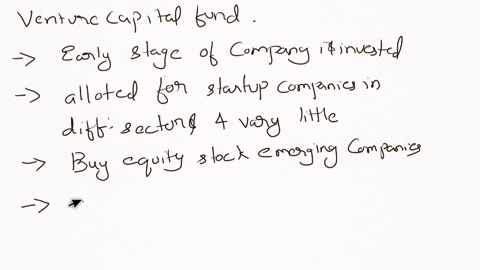 Venture capital fund.
→ Early stage of Company it invested
→ alloted for startup companies in
diff. sectors & vary little
→ Buy equity stock emerging Companies
→